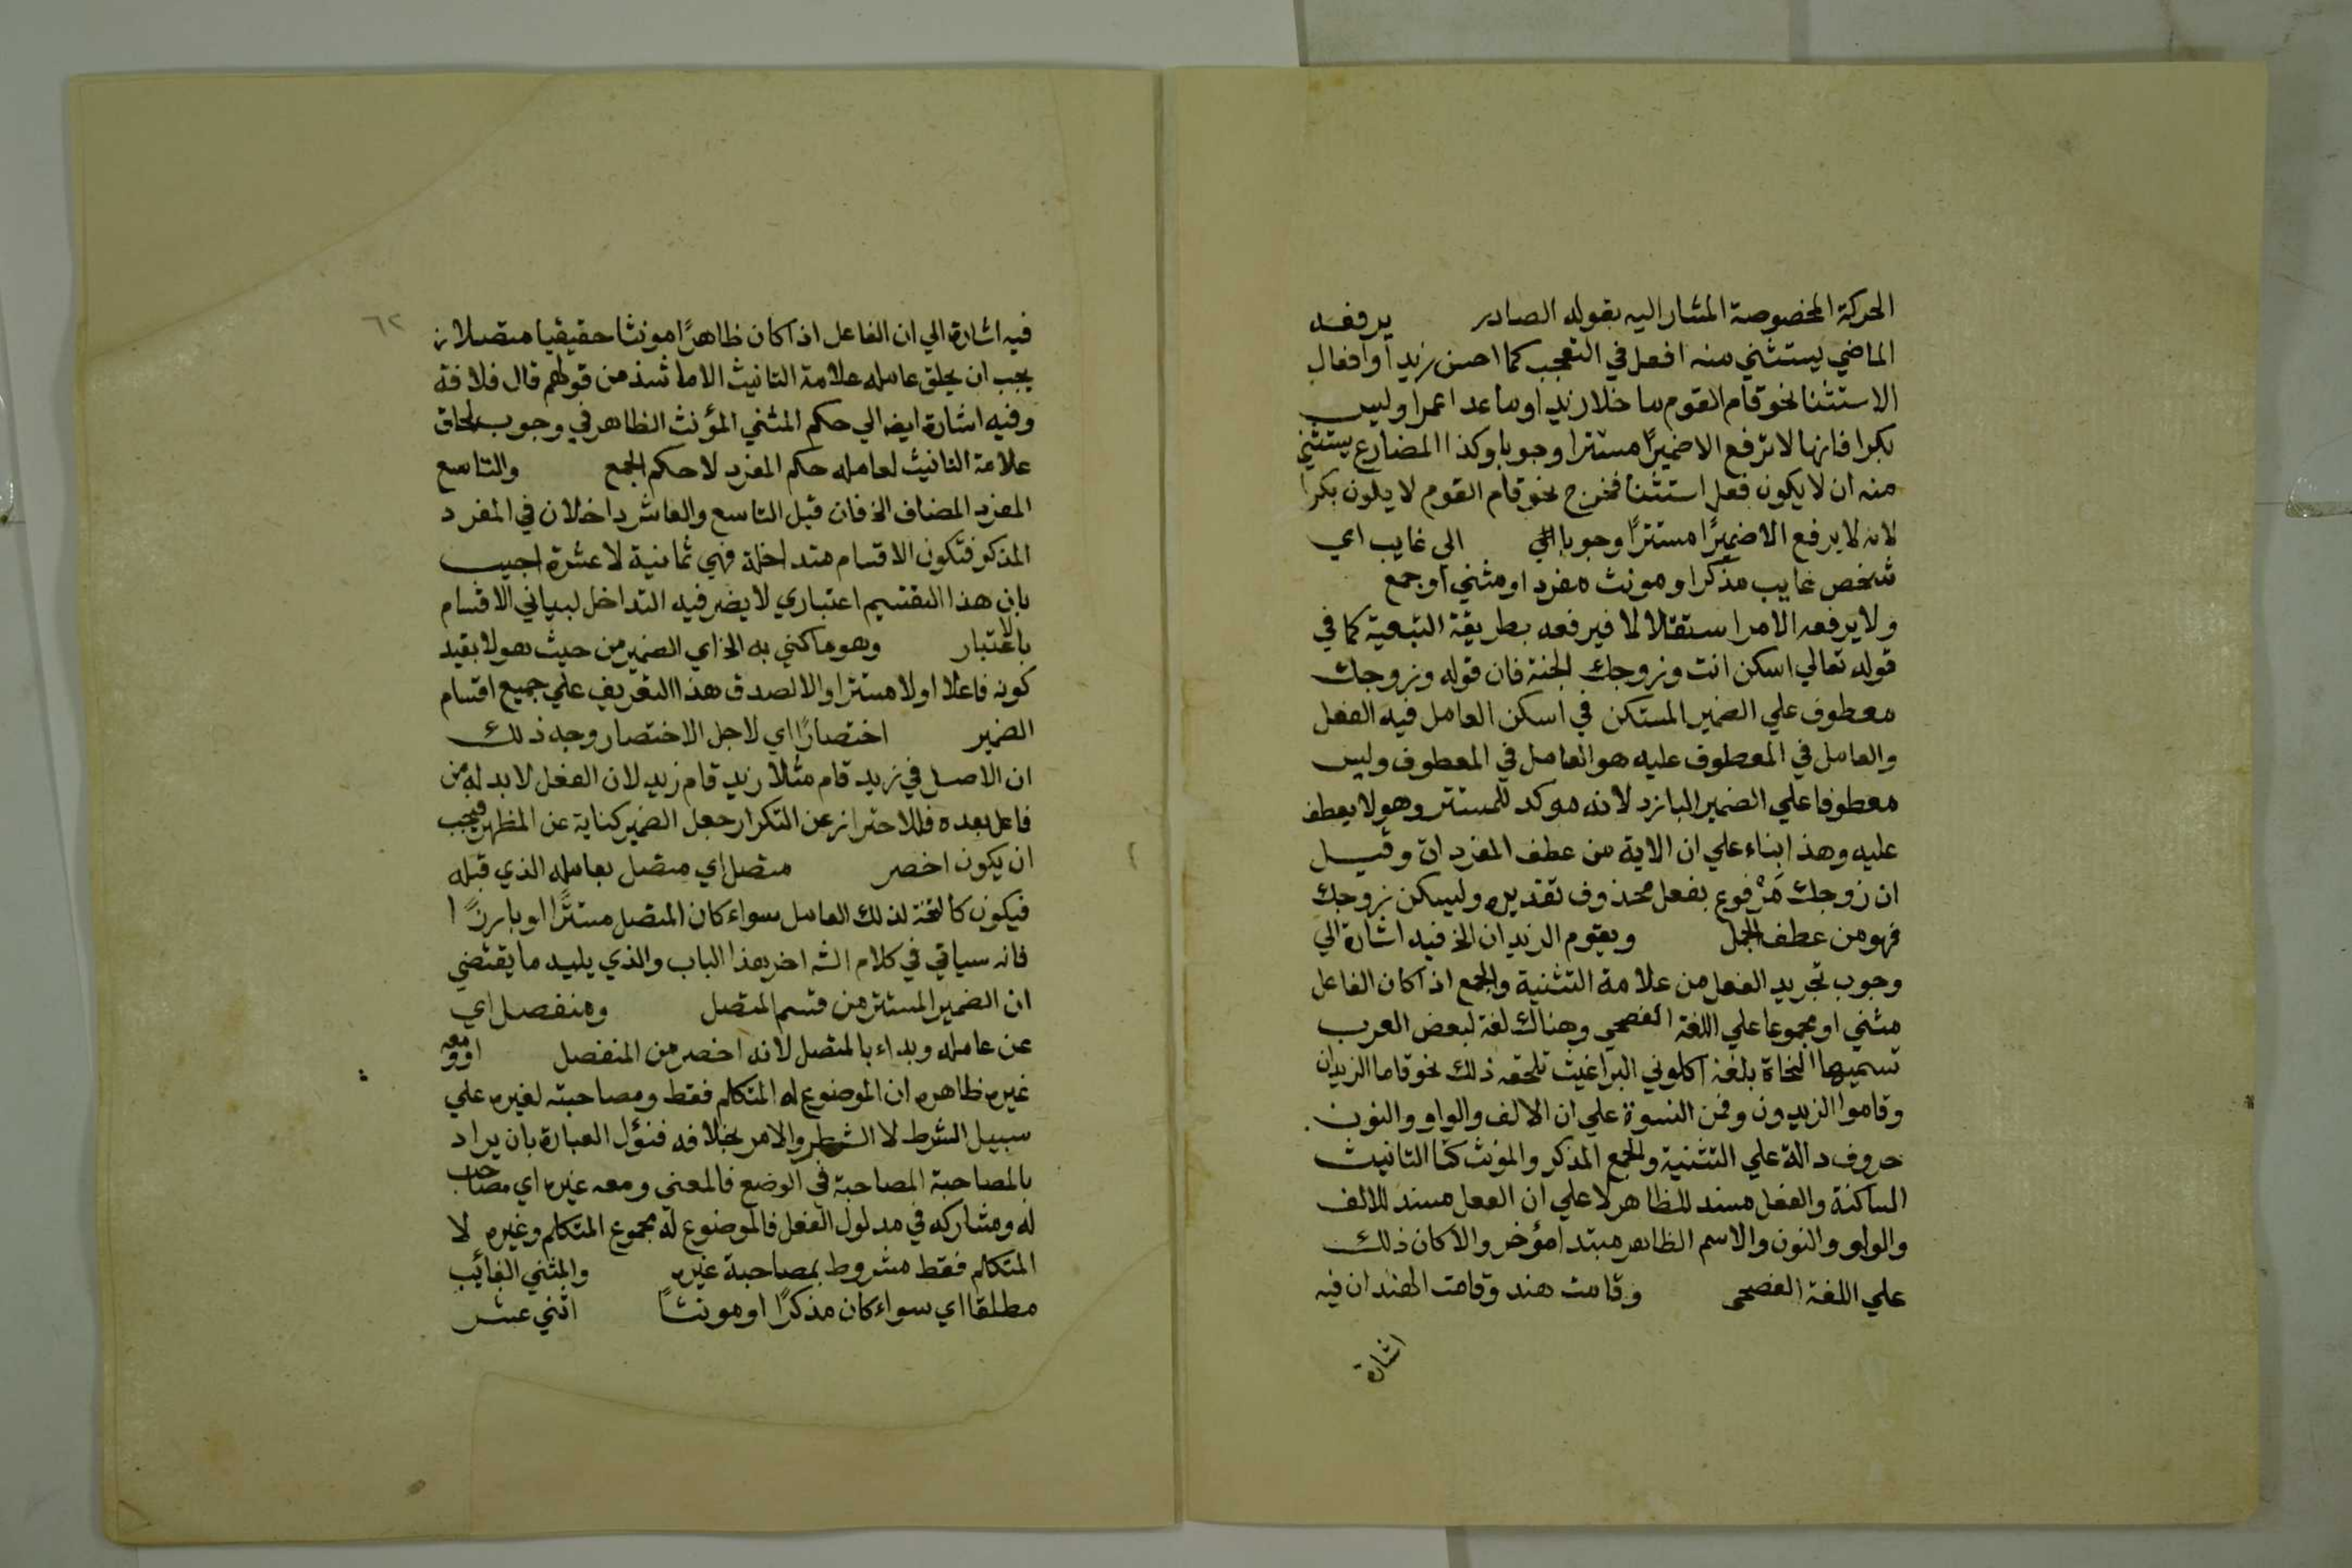 الحركة المخصوصة المشار اليه بقوله الصادر يرفعه
الماضي يستثني منه افعل في التعجب كما احسن زيدا وافعال
الاستثنا نحو قام القوم ما خلا زيدا وماعدا عمرا وليس
بكرا فانها لا ترفع الا ضميرًا مستترا وجوبا وكذا المضارع يستثني
منه ان لا يكون فعل استثنا فخرج نحو قام القوم لا يكون بكرا
لانه لا يرفع الا ضميرًا مستترًا وجوبا الى غايب اي
شخص غايب مذكرا ومونث مفرد او مثني او جمع
ولا يرفعه الامر استقلالا لما فيرفعه بطريقة التبعية كما في
قوله تعالي اسكن انت وزوجك الجنة فان قوله وزوجك
معطوف علي الضمير المستكن في اسكن العامل فيه الفعل
والعامل في المعطوف عليه هو العامل في المعطوف وليس
معطوفا علي الضمير البارز لانه موكد للمستتر وهو لا يعطف
عليه وهذا بناء علي ان الاية من عطف المفردات وقيل
ان زوجك مَرْفوع بفعل محذوف تقديره وليسكن زوجك
فهو من عطف الجمل ويقوم الزيدان الخ فيه اشارة الي
وجوب تجريد الفعل من علامة التثنية والجمع اذا كان الفاعل
مثني او مجموعا علي اللغة الفصحي وهناك لغة لبعض العرب
تسميها النحاة بلغة اكلوني البراغيث تلحقه ذلك نحو قاما الزيدان
وقاموا الزيدون وقمن النسوة علي ان الالف والواو والنون
حروف دالة علي التثنية والجمع المذكر والمونث كتا التانيث
الساكنة والفعل مسند للظاهر لا علي ان الفعل مسند للالف
والواو والنون والاسم الظاهر مبتدا مؤخر والا كان ذلك
علي اللغة الفصحى وقامت هند وقامت الهندان فيه
اشارة
٦٢
فيه اشارة الي ان الفاعل اذا كان ظاهرًا مونثا حقيقيا متصلا
يجب ان يلحق عامله علامة التانيث الا ما شذ من قولهم قال فلانة
وفيه اشارة ايضا الي حكم المثني المؤنث الظاهر في وجوب لحاق
علامة التانيث لعامله حكم المفرد لا حكم الجمع والتاسع
المفرد المضاف الخ فان قيل التاسع والعاشر داخلان في المفرد
المذكور فتكون الاقسام متداخلة فهي ثمانية لا عشرة اجيب
بان هذا التقسيم اعتباري لا يضر فيه التداخل لبياني الاقسام
بالاعتبار وهو ما كني به الخ اي الضمير من حيث هو لا بقيد
كونه فاعلا اولا مستترا والا لصدق هذا التعريف علي جميع اقسام
الضمير اختصارًا اي لاجل الاختصار وجه ذلك
ان الاصل في زيد قام مثلا زيد قام زيد لان الفعل لا بد له من
فاعل بعده فللاحتراز عن التكرار جعل الضمير كناية عن المظهر فيجب
ان يكون اخصر متصل اي متصل بعامله الذي قبله
فيكون كالتتمة لذلك العامل سواء كان المتصل مستترًا او بارزًا
فانه سياتي في كلام الشه اخر هذا الباب والذي يليه ما يقتضي
ان الضمير المستتر من قسم المتصل ومنفصل اي
عن عامله وبداء بالمتصل لانه اخصر من المنفصل او ومعه
غيره ظاهره ان الموضوع له المتكلم فقط ومصاحبته لغيره علي
سبيل الشرط لا الشطر والامر بخلافه فنؤل العبارة بان يراد
بالمصاحبة المصاحبة في الوضع فالمعني ومعه غيره اي مصاحب
له ومشاركه في مدلول الفعل فالموضوع له مجموع المتكلم وغيره لا
المتكلم فقط مشروط بمصاحبة غيره والمثني الغائب
مطلقا اي سواء كان مذكرًا او مونثًا اثني عشر